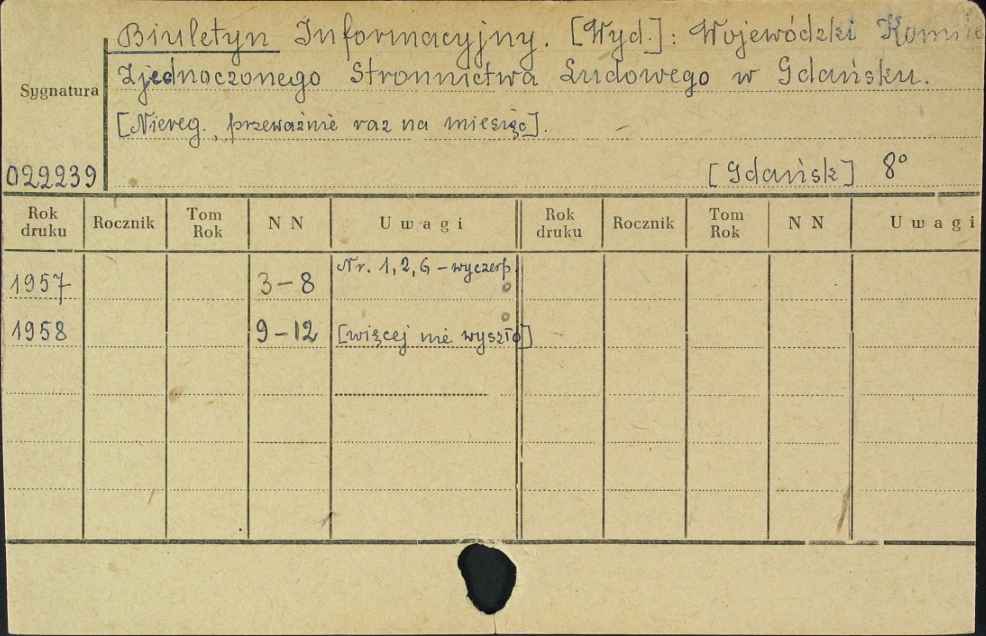 Biuletyn Informacyjny. [Wyd.]: Wojewódzki Komite
Zjednoczonego Stronnictwa Ludowego w Gdańsku.
Sygnatura
[Niereg., przeważnie raz na miesiąc].
022239 [Gdańsk] 8°
Rok druku Rocznik Tom Rok NN Uwagi Rok druku Rocznik Tom Rok NN Uwagi
1957 3-8 Nr. 1, 2, 6 - wyczerp.
1958 9-12 [więcej nie wyszło]